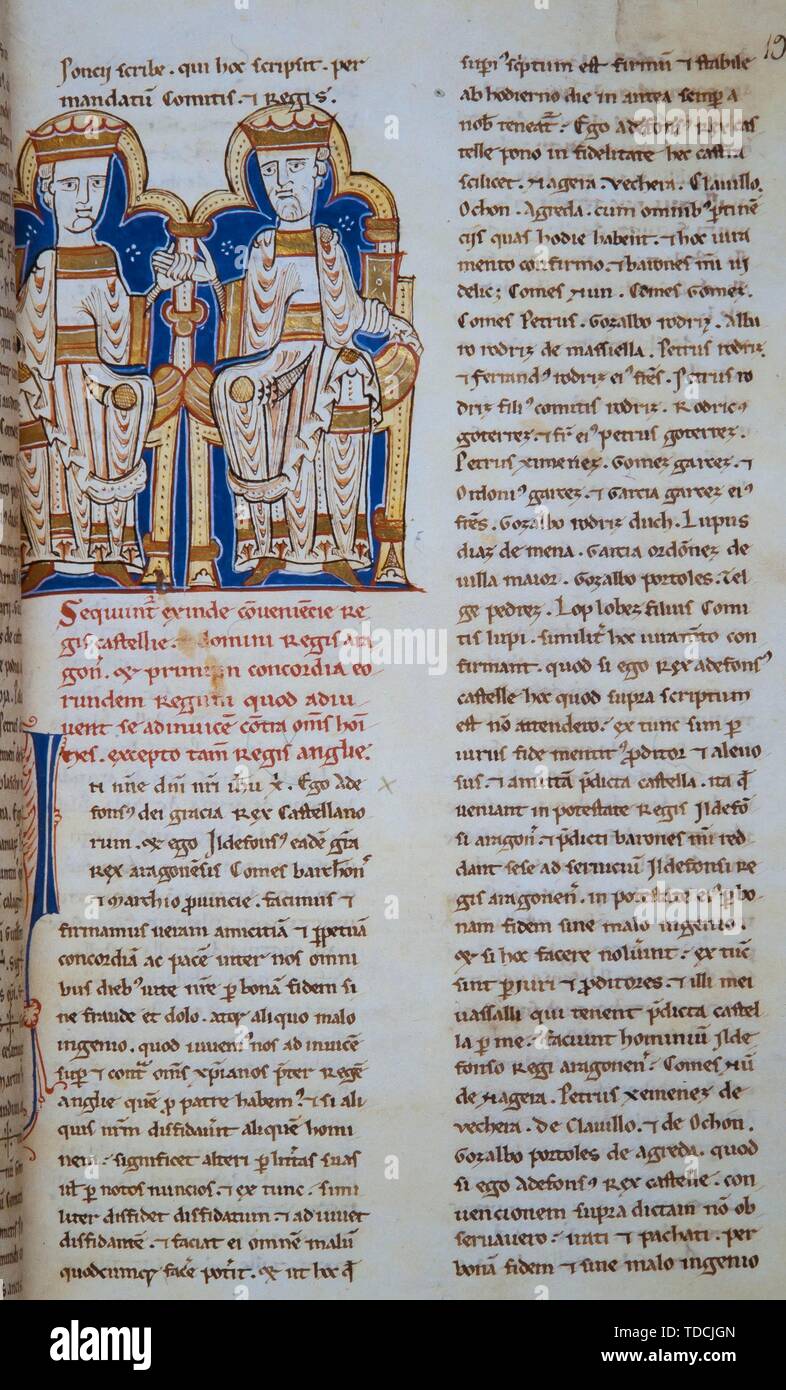 poncij scribe. qui hoc scripsit. per
mandatū Comitis. ⁊ Regis.
Sequunt᷑ exinde cōueniēcie Re
gis castellie. ⁊ domini Regis ara
gon̄. Et primum concordia eo
rundem Regum quod adiu
uent se adinuicē cōtra om̄s hoı̄
nes. excepto tam̄ Regis anglie.
In nn̄e dn̄i nr̄i ih̄u x̄. Ego Ade
fonsꝰ dei gracia Rex Castellano
rum. Et ego Ildefonsꝰ eadē gr̄a
Rex aragonēsis Comes barch̄on̄
⁊ Marchio ꝓuincie. facimus ⁊
firmamus ueram amicitiā ⁊ ꝑpetuā
concordiā ac pacē inter nos omni
bus diebꝰ uite nr̄e ꝑ bonā fidem si
ne fraude et dolo. atqꝫ aliquo malo
ingenio. quod iuuemꝰ nos ad inuicē
suꝑ ⁊ contra om̄s xp̄ianos p̄ter Regē
anglie quē ꝓ patre habemꝰ. ⁊ si ali
quis nr̄m diffidauīt aliquē homi
nem. significet alteri ꝑ litt̄as suas
ul̄ ꝑ notos nuncios. ⁊ ex tunc. simi
liter diffidet diffidatum. ⁊ adiuuet
diffidantē. ⁊ faciat ei omnē malū
quodcumqꝫ facē pot̄it. Et ut hoc qd̄
sup̄ꝰ sc̄ptum est firmū ⁊ stabile
19
ab hodierno die in antea semꝑ a
nob̄ teneat᷑. Ego Adefonsꝰ Rex cas
telle pono in fidelitate hec castra
scilicet. Nagera. vechera. Clauillo.
Ochon. Agreda. cum omnibꝰ ꝑtinē
cijs quas hodie habent. ⁊ hoc iura
mento confirmo. ⁊ barones mı̄ ui
delicꝫ Comes Nun. Comes Gomez.
Comes Petrus. Gozalbo rodriz. Alba
ro rodriz de massiella. Petrus rodriz.
⁊ ferandꝰ rodriz eiꝰ fr̄es. Petrus ro
driz filiꝰ comitis rodriz. Rodricꝰ
goterrez. ⁊ fr̄ eiꝰ petrus goterrez.
Petrus ximenez. Gomez garcez. ⁊
Ordoniꝰ garcez. ⁊ Garcia garcez eiꝰ
fr̄es. Gozalbo rodriz duch. Lupus
diaz de mena. Garcia ordōnez de
uilla maior. Gozalbo portoles. Tel
ge pedrez. Lop lobez filius Comi
tis lupi. similit᷑ hoc iuramento con
firmant. quod si ego Rex adefonsꝰ
castelle hoc quod supra scriptum
est nō attendero. ex tunc sim ꝑ
iurus fide mentitꝰ ꝓditor ⁊ aleuo
sus. ⁊ amittā p̄dicta castella. ita qd̄
ueniant in potestate Regis Ildefō
si aragon̄. ⁊ p̄dicti barones mı̄ red
dant sese ad seruiciū Ildefonsi Re
gis aragonen̄. in potestate eiꝰ ꝑ bo
nam fidem sine malo ingenio.
Et si hoc facere noluīnt. ex tūc
sint ꝑiuri ⁊ ꝓditores. ⁊ illi mei
uassalli qui tenent p̄dicta castel
la ꝑ me. faciunt hominiū Ilde
fonso Regi aragonen̄. Comes Nū
de Nagera. Petrus ximenez de
vechera. de Clauillo. ⁊ de Ochon.
Gozalbo portoles de agreda. quod
si ego Adefonsꝰ Rex castelle. con
uencionem supra dictam nō ob
seruauero. irati ⁊ pachati. per
bonā fidem ⁊ sine malo ingenio
alamy
Image ID: TDCJGN
www.alamy.com